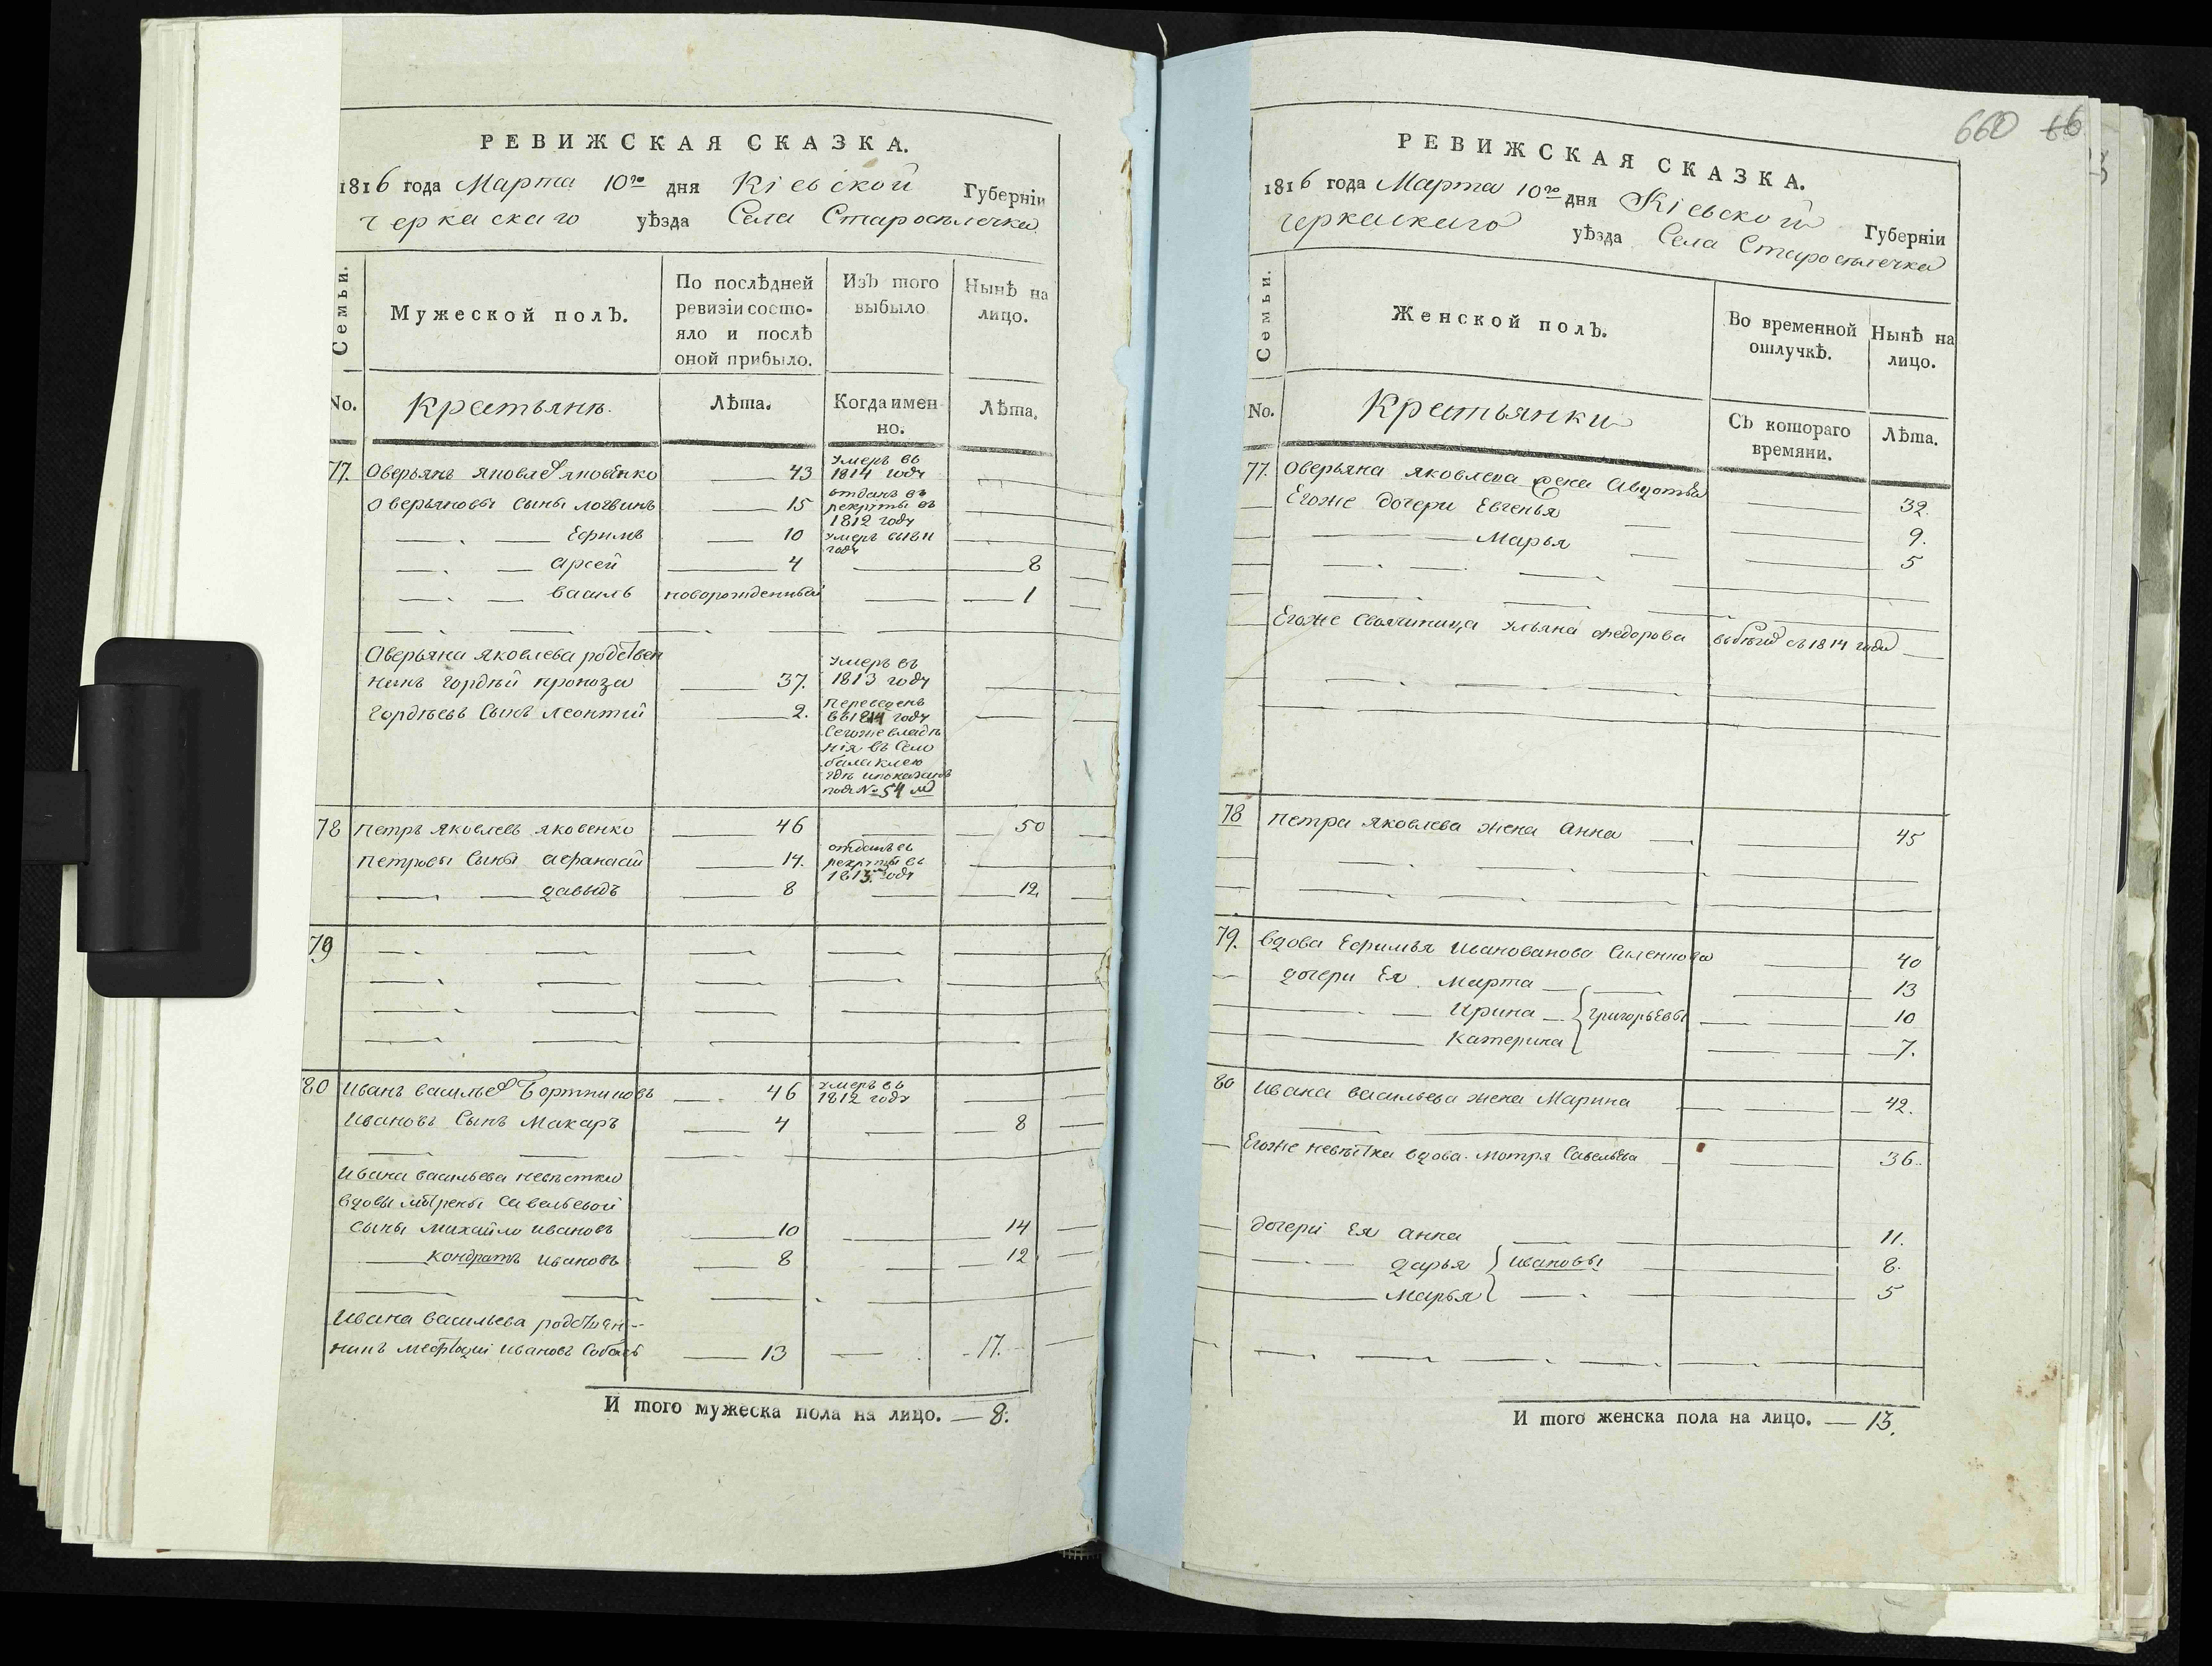 РЕВИЖСКАЯ СКАЗКА.
1816 года Марта 10го дня Кіевской Губерніи
Черкаскаго уѣзда Села Старосѣлечка
Семьи.
Мужеской полъ.
По послѣдней ревизіи состо-
яло и послѣ
оной прибыло.
Изъ того
выбыло.
Нынѣ на
лицо.
No.
Крестьянѣ.
Лѣта.
Когда имен
но.
Лѣта.
77. Оверьянъ Яковлев Яковенко 43 умеръ въ 1814 году
Оверьяновы сыны Логвинъ 15 отданъ въ рекруты въ 1812 году
Ефимъ 10 умеръ в 1811 году
Арсей 4 8
Василь новорожденный 1
Оверьяна Яковлева родствен
никъ Гордѣй Кропоза 37. умеръ въ 1813 году
Гордѣевъ сынъ Леонтий 2. переведенъ
в 1814 году
сегоже владѣ
нія въ село
Балаклею
гдѣ и показанъ
под № 54 м
78 Петръ Яковлевъ Яковенко 46 50
Петровы сыны Афанасий 14. отданъ въ рекруты въ 1813. году
Давыдъ 8 12
79
80 Иванъ Васильев Бортниковъ 46 умеръ въ 1812 году
Ивановъ сынъ Макаръ 4 8
Ивана Васильева невѣстки
вдовы Савельевой
сыны Михайло Ивановъ 10 14
Кондратъ Ивановъ 8 12
Ивана Васильева родствен-
никъ Ивановъ 13 17.
И того мужеска пола на лицо. 8.
660 66
РЕВИЖСКАЯ СКАЗКА.
1816 года Марта 10го дня Кіевской Губерніи
Черкаскаго уѣзда Села Старосѣлечка
Семьи.
Женской полъ.
Во временной
отлучкѣ.
Нынѣ на
лицо.
No.
Крестьянки
Съ котораго
времяни.
Лѣта.
77. Оверьяна Яковлева жена Авдотья 32.
Егоже дочери Евгенья 9.
Марья 5
Егоже своячиница Ульяна Федорова в съ 1814 года
78 Петра Яковлева жена Анна 45
79. Вдова Ефимья 40
дочери Ея Марта 13
Ирина Григорьевы 10
Катерина 7.
80 Ивана Васильева жена Марина 42.
Егоже невѣстка вдова Мотря Савельева 36.
дочери Ея Анна 11.
Дарья Ивановы 8.
Марья 5
И того женска пола на лицо. 13.